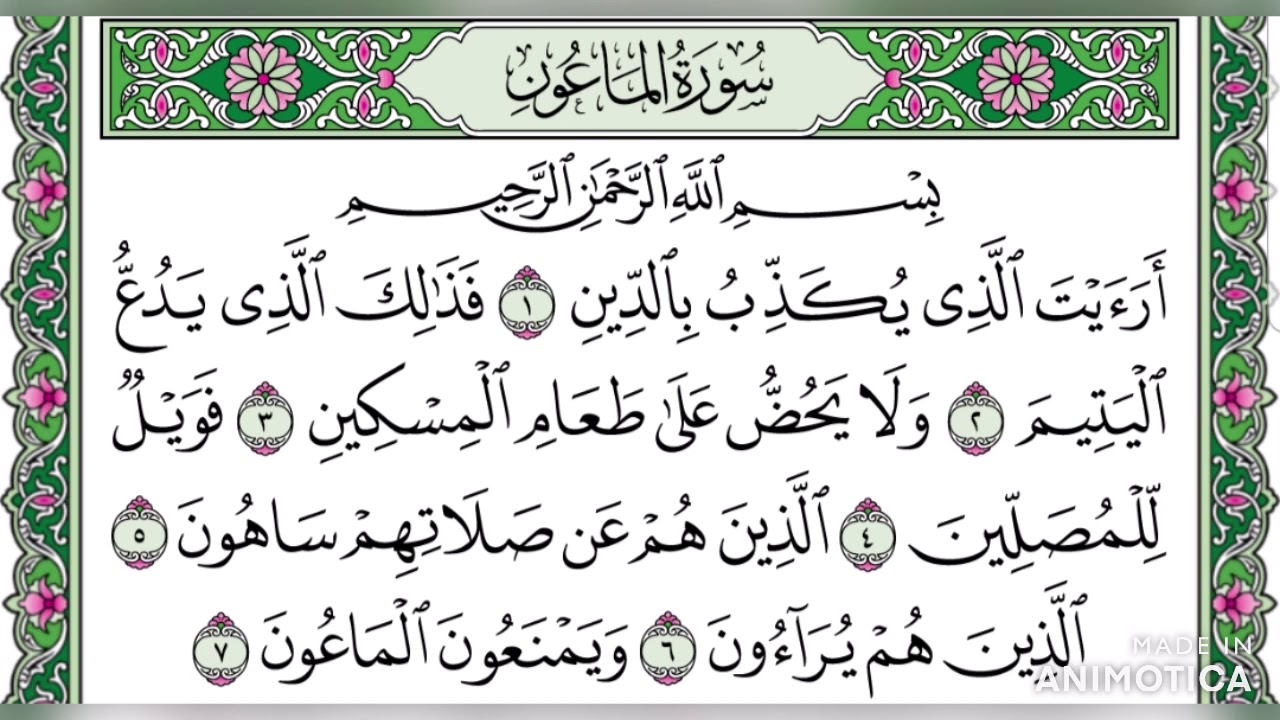 سُورَةُ الْمَاعُونِ
بِسْمِ ٱللَّهِ ٱلرَّحْمَٰنِ ٱلرَّحِيمِ
أَرَءَيْتَ ٱلَّذِى يُكَذِّبُ بِٱلدِّينِ ١ فَذَٰلِكَ ٱلَّذِى يَدُعُّ
ٱلْيَتِيمَ ٢ وَلَا يَحُضُّ عَلَىٰ طَعَامِ ٱلْمِسْكِينِ ٣ فَوَيْلٌ
لِّلْمُصَلِّينَ ٤ ٱلَّذِينَ هُمْ عَن صَلَاتِهِمْ سَاهُونَ ٥
ٱلَّذِينَ هُمْ يُرَآءُونَ ٦ وَيَمْنَعُونَ ٱلْمَاعُونَ ٧
MADE IN
ANIMOTICA